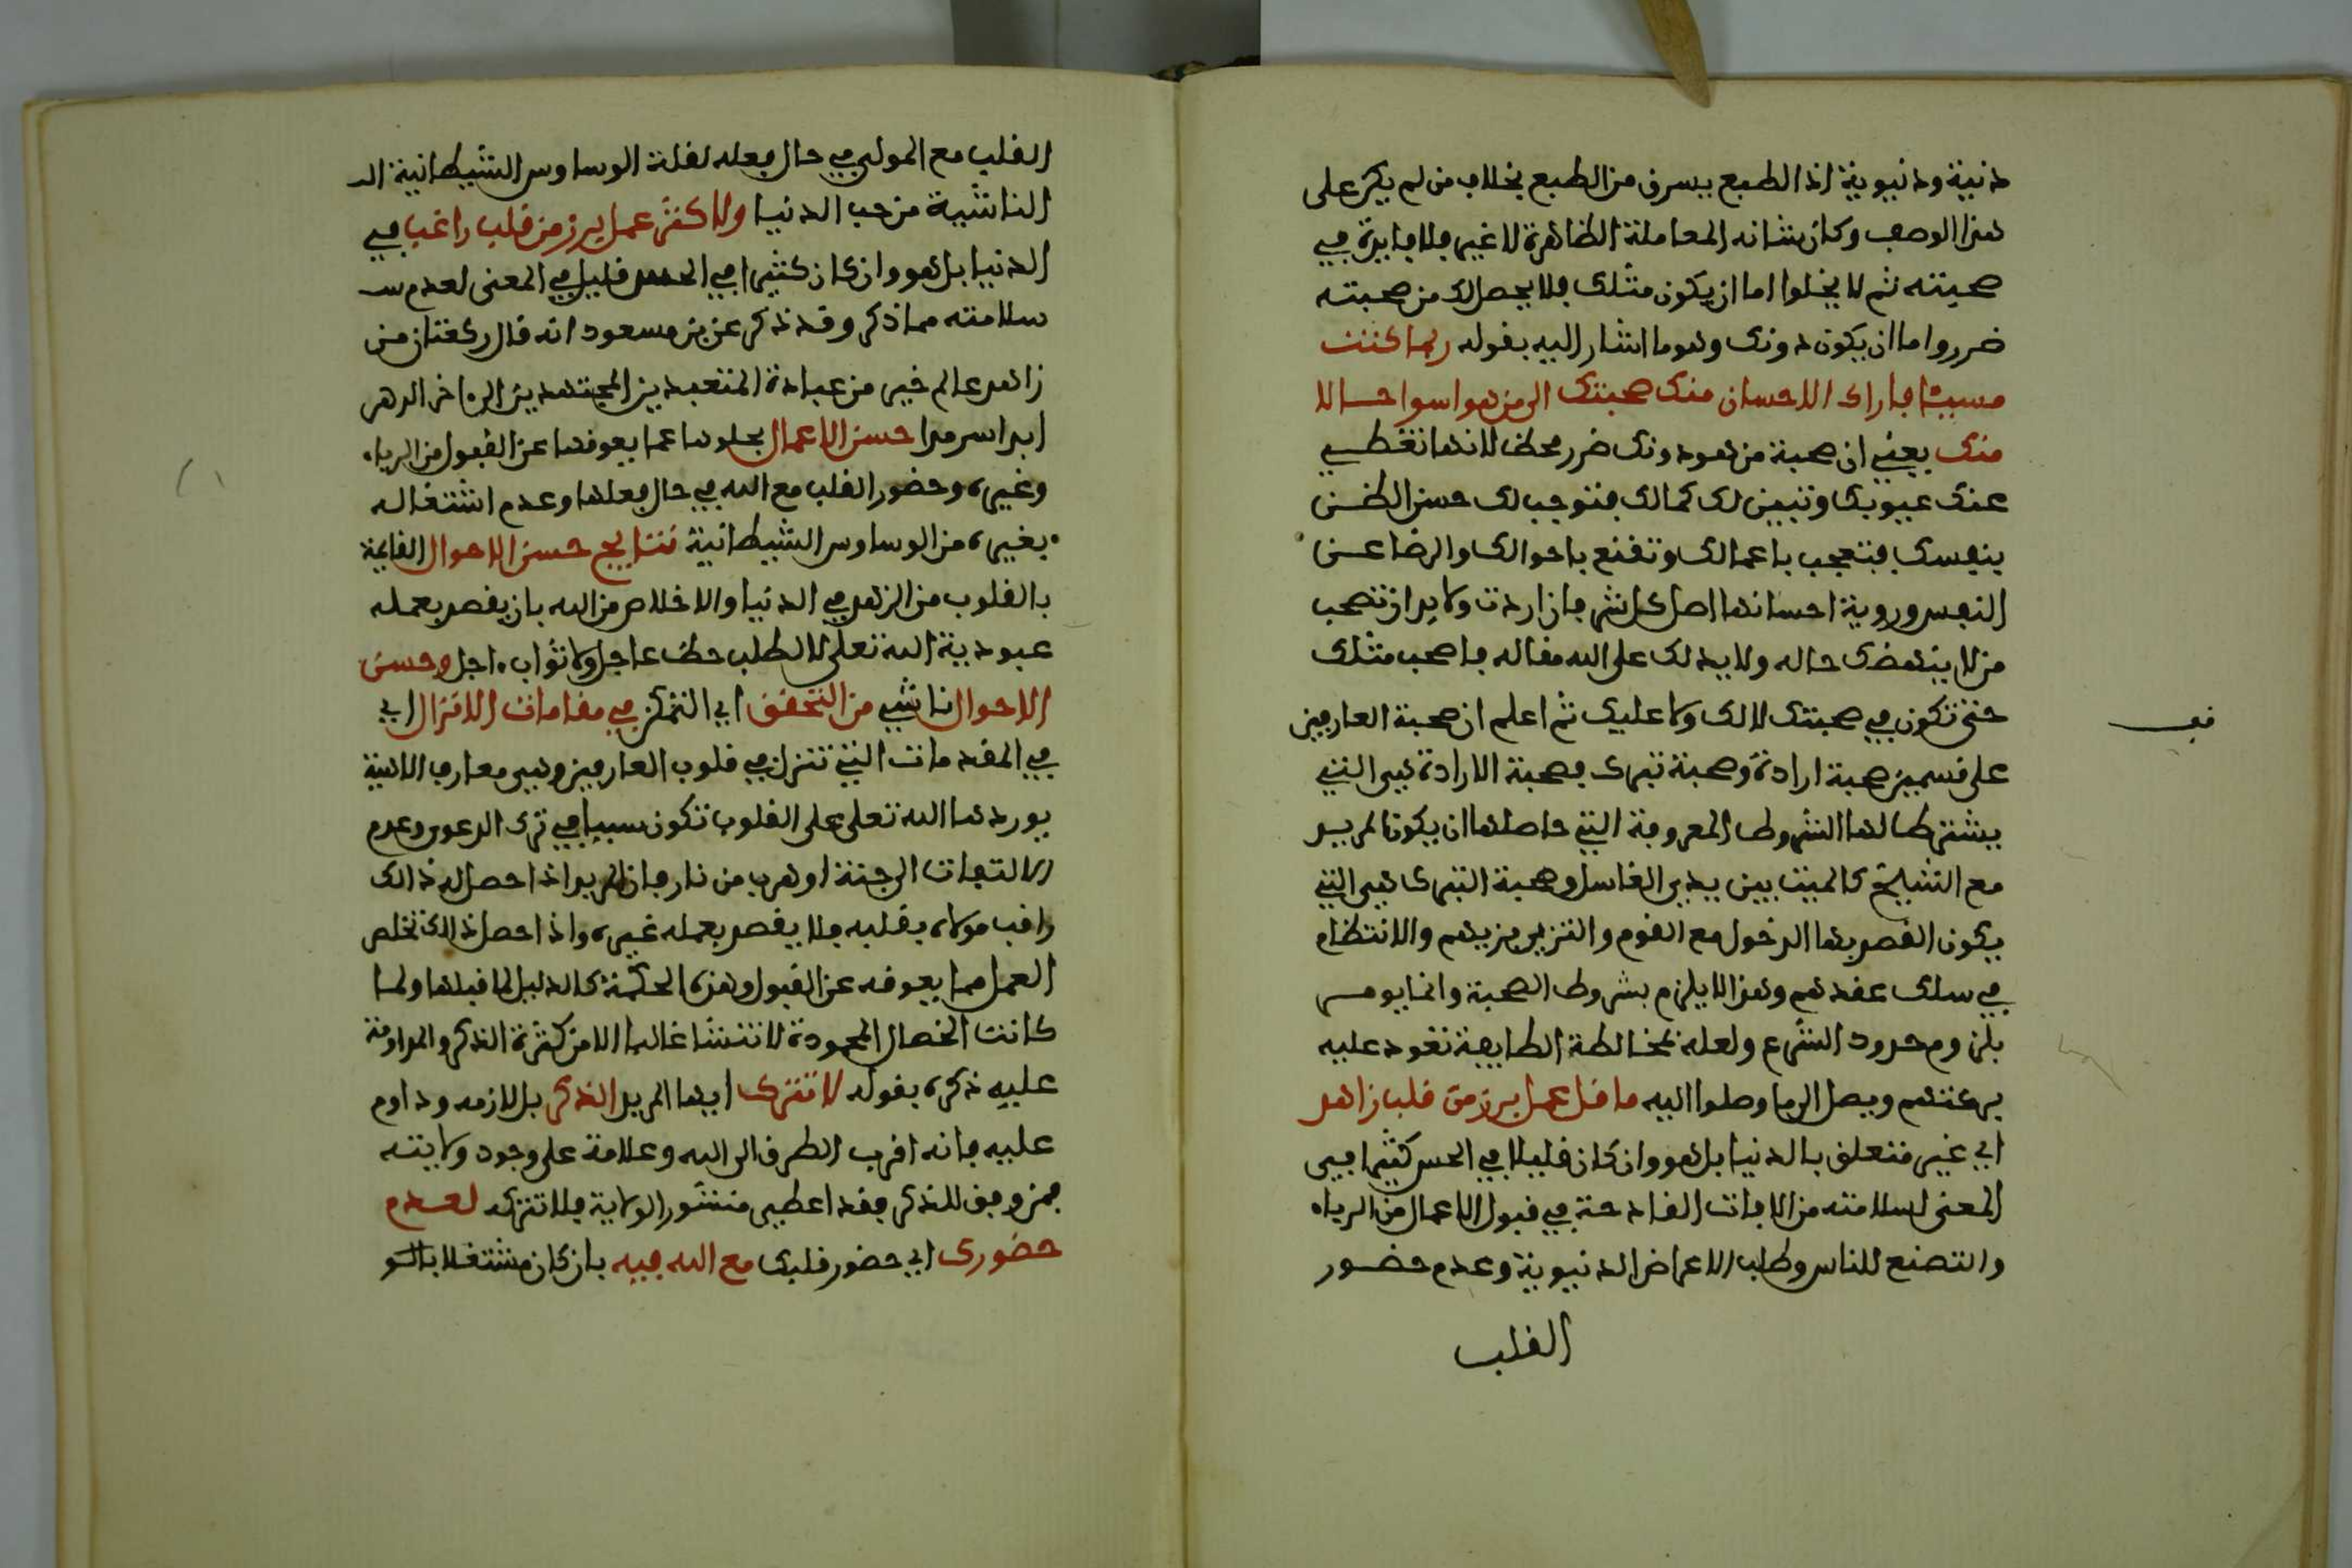 دنية ودنيوية اذ الطبع يسرق من الطبع بخلاف من لم يكن على
هذا الوصف وكان شانه المعاملة الظاهرة لا غير فلا فايدة في
صحبته ثم لا يخلوا اما ان يكون مثلك فلا يحصل لك من صحبته
ضرر واما ان يكون دونك وهو ما اشار اليه بقوله ربما كنت
مسيئا فاراك الاحسان منك صحبتك الى من هو اسوا حالا
منك يعني ان صحبة من هو دونك ضرر محظ لانها تغطي
عنك عيوبك وتبين لك كمالك فتوجب لك حسن الظن
بنفسك فتعجب باعمالك وتقنع باحوالك والرضا عن
النفس وروية احسانها اصل كل شر فان اردت ولابد ان تصحب
من لا ينهضك حاله ولا يدلك على الله مقاله فاصحب مثلك
حتى تكون في صحبتك لا لك ولا عليك ثم اعلم ان صحبة العارفين
قف
على قسمين صحبة ارادة وصحبة تبرك فصحبة الارادة هي التي
يشترط لها الشروط المعروفة التي حاصلها ان يكون المريد
مع الشيخ كالميت بين يدي الغاسل وصحبة التبرك هي التي
يكون القصد بها الدخول مع القوم والتزيي بزيهم والانتظام
في سلك عقدهم وهذا لا يلزم بشروط الصحبة وانما يومر
بلزوم حدود الشرع ولعله بمخالطة الطايفة تعود عليه
بركتهم ويصل الى ما وصلوا اليه ما قل عمل برز من قلب زاهد
اي غير متعلق بالدنيا بل هو وان كان قليلا في الحس كثيرا في
المعنى لسلامته من الافات القادحة في قبول الاعمال من الرياء
والتصنع للناس وطلب الاعراض الدنيوية وعدم حضور
القلب
القلب مع المولى في حال فعله لقلة الوساوس الشيطانية الـ
الناشية من حب الدنيا ولا كثر عمل برز من قلب راغب في
الدنيا بل هو وان كان كثيرا في الحس قليل في المعنى لعدم سـ
سلامته مما ذكر وقد ذكر عن بن مسعود انه قال ركعتان من
زاهد عالم خير من عبادة المتعبدين المجتهدين الى اخر الدهر
ابدا سرمدا حسن الاعمال بخلوها عما يعوقها عن القبول من الرياء
وغيره وحضور القلب مع الله في حال فعلها وعدم اشتغاله
بغيره من الوساوس الشيطانية نتايج حسن الاحوال القايمة
بالقلوب من الزهد في الدنيا والاخلاص من الله بان يقصد بعمله
عبودية الله تعلى لا لطلب حظ عاجل ولا ثواب اجل وحسن
الاحوال ناشي من التحقق اي التمكن في مقامات الانزال اي
في المقدمات التي تنزل في قلوب العارفين وهي معارف الاهية
يوردها الله تعلى على القلوب تكون سببا في ترك الدعوى وعدم
الالتفات الى جنة او هرب من نار فان المريد اذا حصل له ذالك
راقب مولاه بقلبه فلا يقصد بعمله غيره واذا حصل ذالك تخلص
العمل مما يعوقه عن القبول وهذه الحكمة كالدليل لما قبلها ولما
كانت الخصال المحمودة لا تنشا غالبا الا من كثرة الذكر والمداومة
عليه ذكره بقوله لا تترك ايها المريد الذكر بل لازمه وداوم
عليه فانه اقرب الطرق الى الله وعلامة على وجود ولايته
فمن وفق للذكر فقد اعطي منشور الولاية فلا تتركه لعدم
حضورك اي حضور قلبك مع الله فيه بان كان مشتغلا بالسو